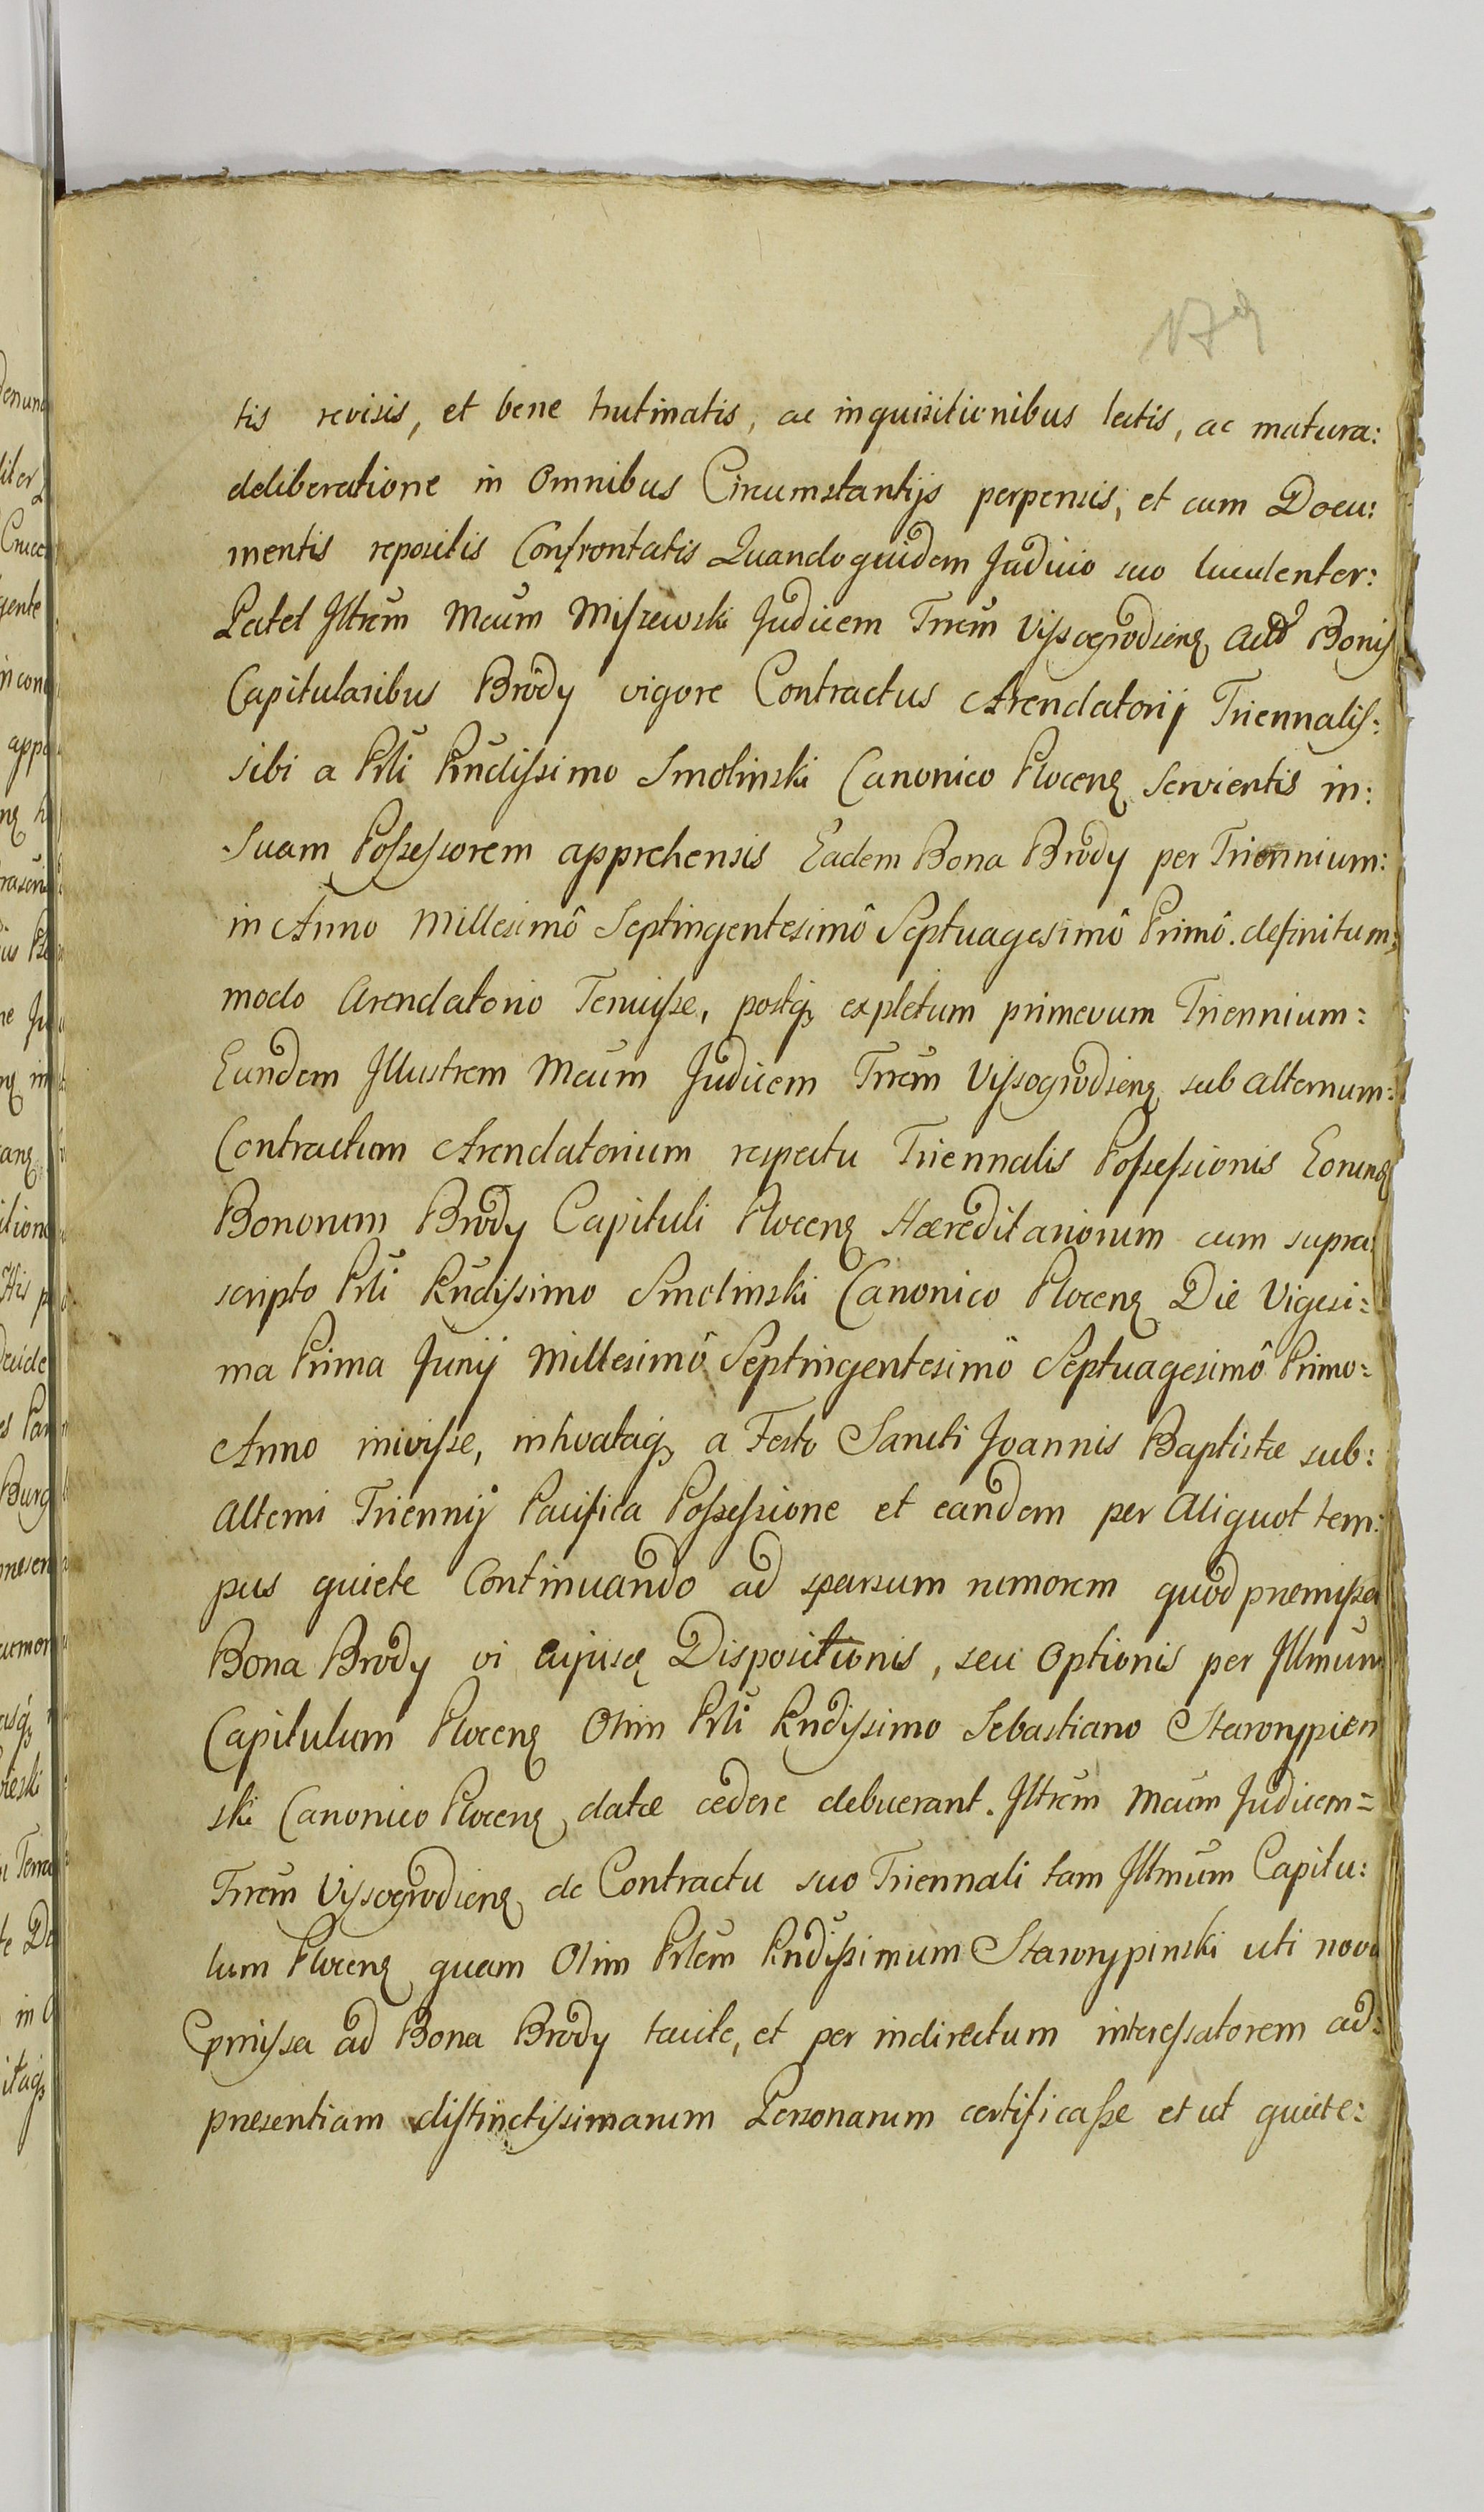 179
tis revisis, et bene trutinatis, ac inquisitionibus lectis, ac matura:
deliberatione in Omnibus Circumstantijs perpensis, et cum Docu:
mentis repositis Confrontatis Quandoquidem Judicio suo luculenter:
Patet Jltrem Mcum Miszewski Judicem Trrem Vyssogrodiens Bonis
Capitularibus Brody vigore Contractus Arendatorij Triennalis:
sibi a Prli Rndissimo Smolinski Canonico Plocens servientis in:
Suam Possessorem apprehensis Eadem Bona Brody per Triennium:
in Anno Millesimô Septingentesimô Septuagesimô Primô. definitum:
modo Arendatorio Tenuisse, postq expletum primevum Triennium:
Eundem Jllustrem Mcum Judicem Trrem Vyssogrodiens sub alternum:
Contractum Arendatorium respectu Triennalis Possessionis Eorund
Bonorum Brody Capituli Plocens Hæreditariorum cum supra
scripto Prli Rndissimo Smolinski Canonico Plocens Die Vigesi:
ma Prima Junij Millesimô Septingentesimô Septuagesimô Primo:
Anno inivisse, introataq a Festo Sancti Joannis Baptistæ sub:
alterni Triennij Pacifica Possessione et eandem per Aliquot tem:
pus quiete Continuando ad sparsum rumorem quod premissa
Bona Brody vi cujusq Dispositionis, seu Optionis per Jllmum
Capitulum Plocens Olim Prli Rndissimo Sebastiano Starorypien
ski Canonico Plocens datæ cedere debuerant. Jltrem Mcum Judicem=
Trrem Vyssogrodiens de Contractu suo Triennali tam Jllmum Capitu:
lum Plocens quam Olim Prlem Rndissimum Starorypinski uti nove
pmissa ad Bona Brody tacite, et per indirectum interessatorem ad:
presentiam distinctissimarum Personarum certificasse et ut quiete: